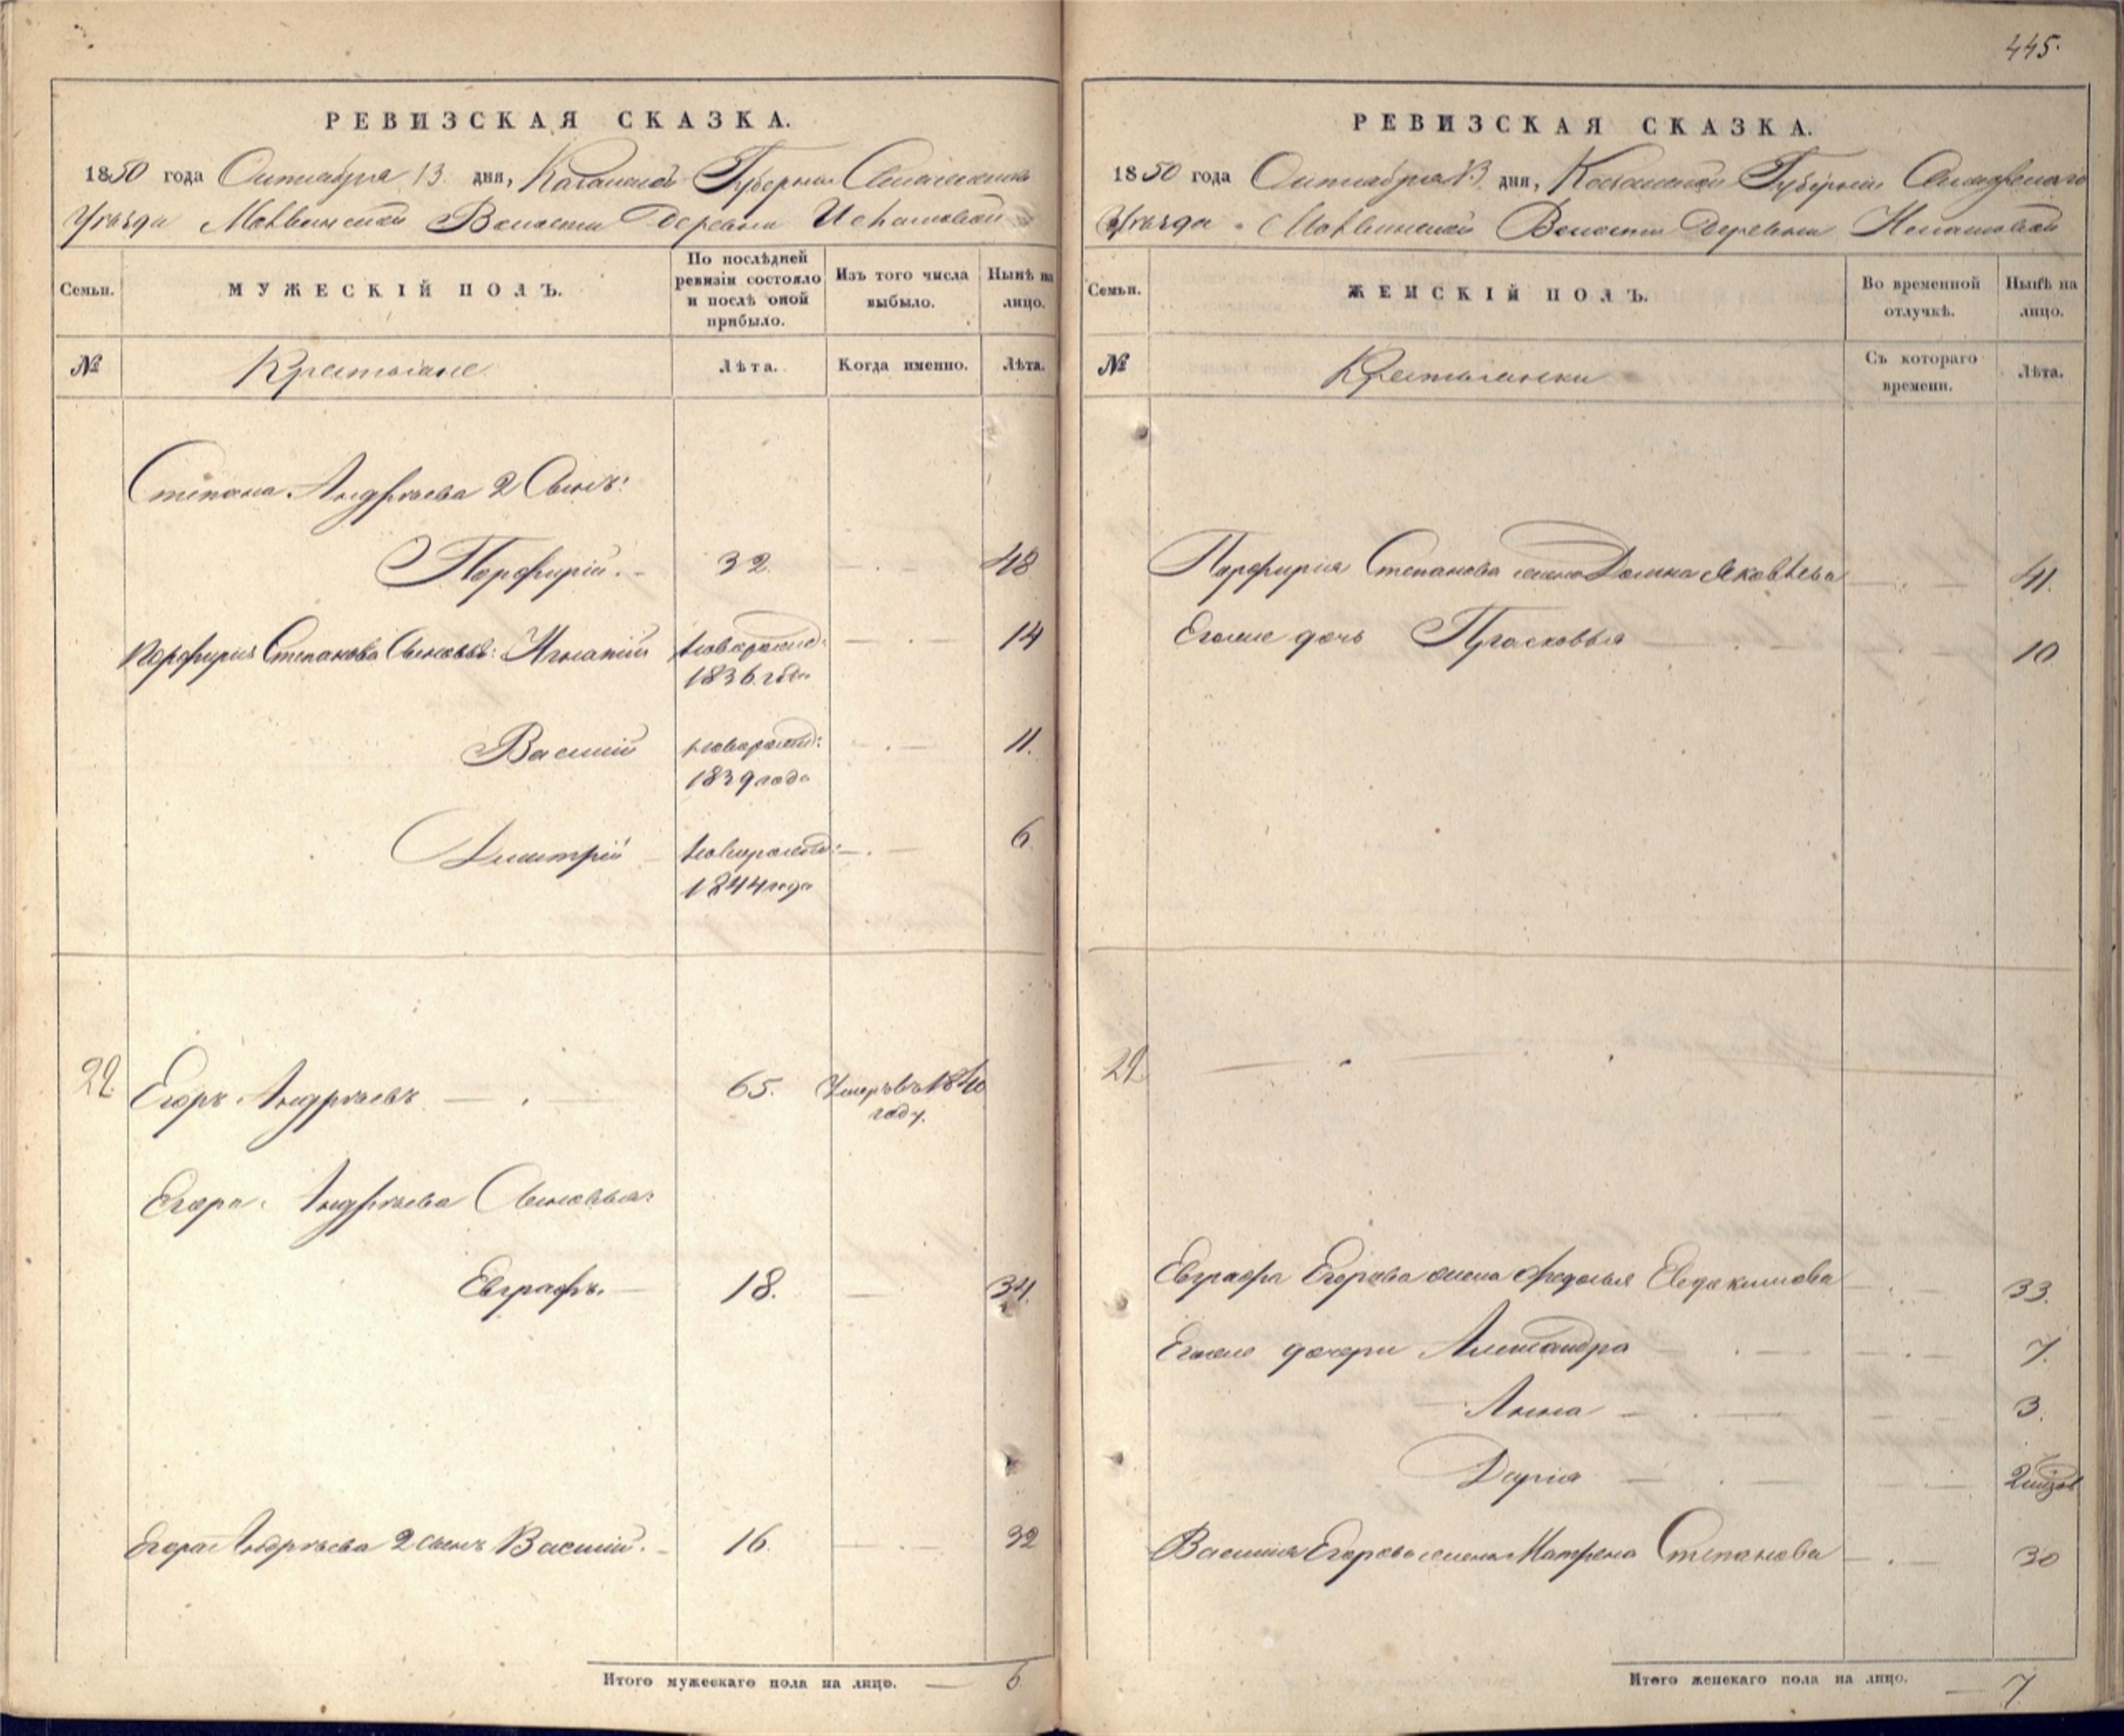 445.
РЕВИЗСКАЯ СКАЗКА.
1850 года Октября 13 дня, Казанской Губернии Спасскаго
Уѣзда Волости Деревни
Семьи. МУЖЕСКІЙ ПОЛЪ. По послѣдней ревизіи состояло и послѣ оной прибыло. Изъ того числа выбыло. Нынѣ на лицо.
№ Крестьяне Лѣта. Когда именно. Лѣта.
Степана Андрѣева 2 Сынъ:
Порфирій. 32. 48
Порфирія Степанова Сыновья: Игнатій новорожд: 14
1836 года
Василій новорожд: 11.
1839 года
Дмитрій новорожд: 6
1844 года
22. Егоръ Андрѣевъ 65. Умеръ въ 1840
году.
Егора Андрѣева Сыновья:
Евграфъ. 18. 34.
Егора Андрѣева 2 сынъ Василій. 16. 32
Итого мужескаго пола на лицо. 6
РЕВИЗСКАЯ СКАЗКА.
1850 года Октября 13 дня, Казанской Губерніи
Уѣзда Волости Деревни
Семьи. ЖЕНСКІЙ ПОЛЪ. Во временной отлучкѣ. Нынѣ на лицо.
№ Крестьянки Съ котораго времени. Лѣта.
Порфирія Степанова жена Домна Яковлева 41.
Егоже дочь Прасковья 10
22
Евграфа Егорова жена Федосья Евдокимова 33.
Егоже дочери Александра 7.
Анна 3.
Дарія
Василія Егорова жена Матрена Степанова 30
Итого женскаго пола на лицо. 7